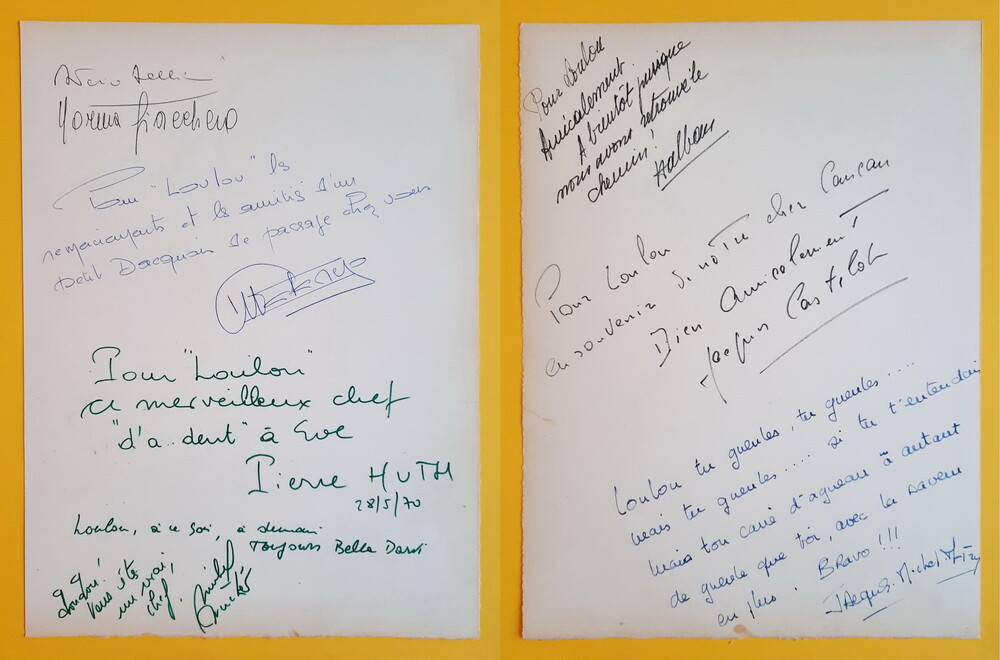 Pour "Loulou" les
remerciements et les amitiés d'un
petit Dacquois de passage chez vous
Pour "Loulou"
ce merveilleux chef
"d'a..dent" à Eve
Pierre HUTH
28/5/70
Loulou, à ce soir, à demain
Toujours Bella
Loulou!
Vous êtes
un vrai,
chef.
Pour Loulou
Amicalement.
A bientôt puisque
nous avons retrouvé le
chemin!
Pour Loulou
en souvenir de notre cher Cancan
Bien Amicalement
Jacques Castelot
Loulou tu gueules, tu gueules....
mais tu gueules..... si tu t'entendais
mais ton carré d'agneau à autant
de gueule que toi, avec la saveur
en plus. Bravo!!!
Jacques-Michel